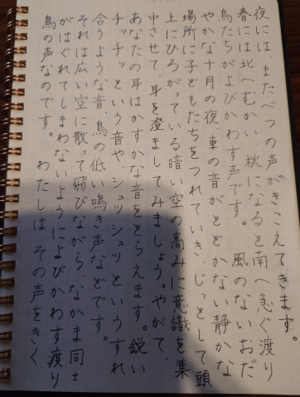 夜には またべつの声がきこえてきます。
春には北へむかい、秋になると南へ急ぐ渡り
鳥たちがよびかわす声です。 風のないおだ
やかな十月の夜、車の音がとどかない静かな
場所に子どもたちをつれていき、じっとして頭
上にひろがっている暗い空の高みに意識を集
中させて、耳を澄ましてみましょう。やがて、
あなたの耳はかすかな音をとらえます。鋭い
チッチッという音や、シュッシュッというすれ
合うような音、鳥の低い鳴き声などです。
それは広い空に散って飛びながら、なかま同士
がはぐれてしまわないようによびかわす渡り
鳥の声なのです。 わたしは その声をきく